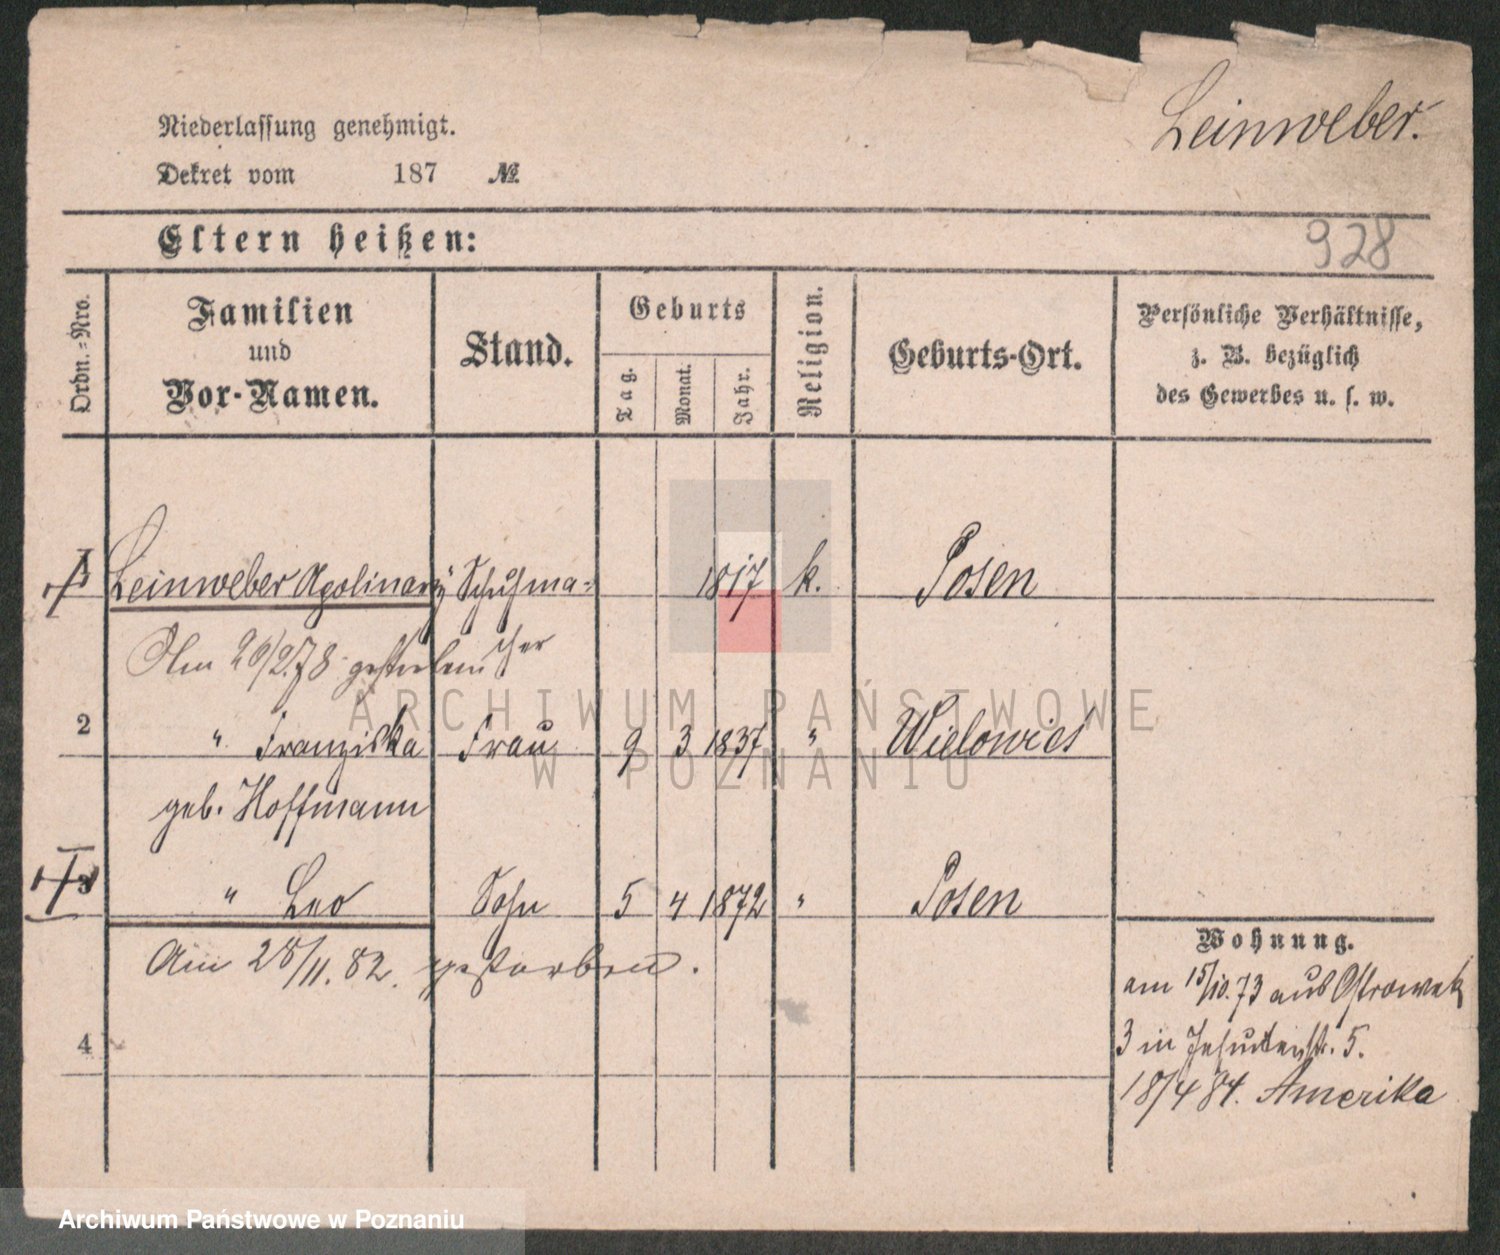 Leinweber.
Niederlassung genehmigt.
Dekret vom 187 №
Eltern heißen:
928
Ordn.-Nro.
Familien und Vor-Namen.
Stand.
Geburts
Tag.
Monat.
Jahr.
Religion.
Geburts-Ort.
Persönliche Verhältnisse,
z. B. bezüglich
des Gewerbes u. s. w.
Leinweber Apolinary Schuhma= 1817 k. Posen
cher
Am 26/2.78 gestorben
2 " Franziska Frau 9 3 1837 " Wielowies
geb. Hoffmann
3 " Leo Sohn 5 4 1872 " Posen
Am 28/11.82. gestorben.
4
Wohnung.
am 15/10.73 aus Ostrowek
3 in Jesuitenstr. 5.
18/4 84. Amerika
ARCHIWUM PAŃSTWOWE
W POZNANIU
Archiwum Państwowe w Poznaniu